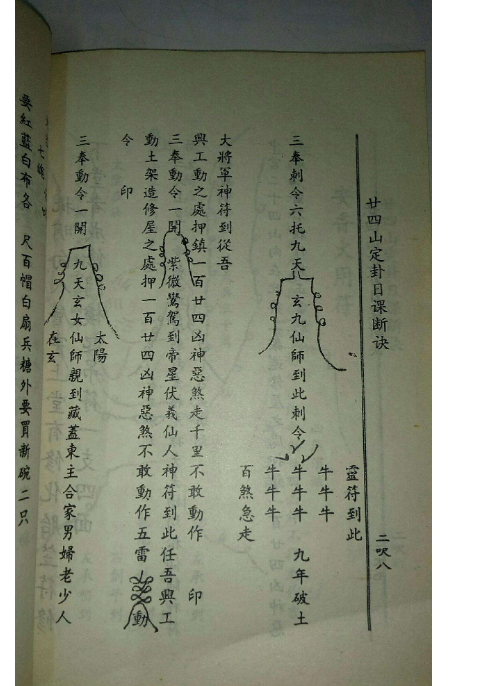 廿四山定卦日课断诀
二呎八
靈符到此
牛牛牛
三奉刺令六托九天玄九仙師到此刺令牛牛牛九年破土
牛牛牛
百煞急走
大將軍神符到從吾
興工動之處押鎮一百廿四凶神惡煞走千里不敢動作印
三奉動令一開紫微鸞駕到帝星伏義仙人神符到此任吾興工
動土架造修屋之處押一百廿四凶神惡煞不敢動作五雷動
令印
太陽
三奉動令一開九天玄女仙師親到藏蓋東主合家男婦老少人
在玄
要紅藍白布各尺百帽白扇兵糖外要買新碗二只